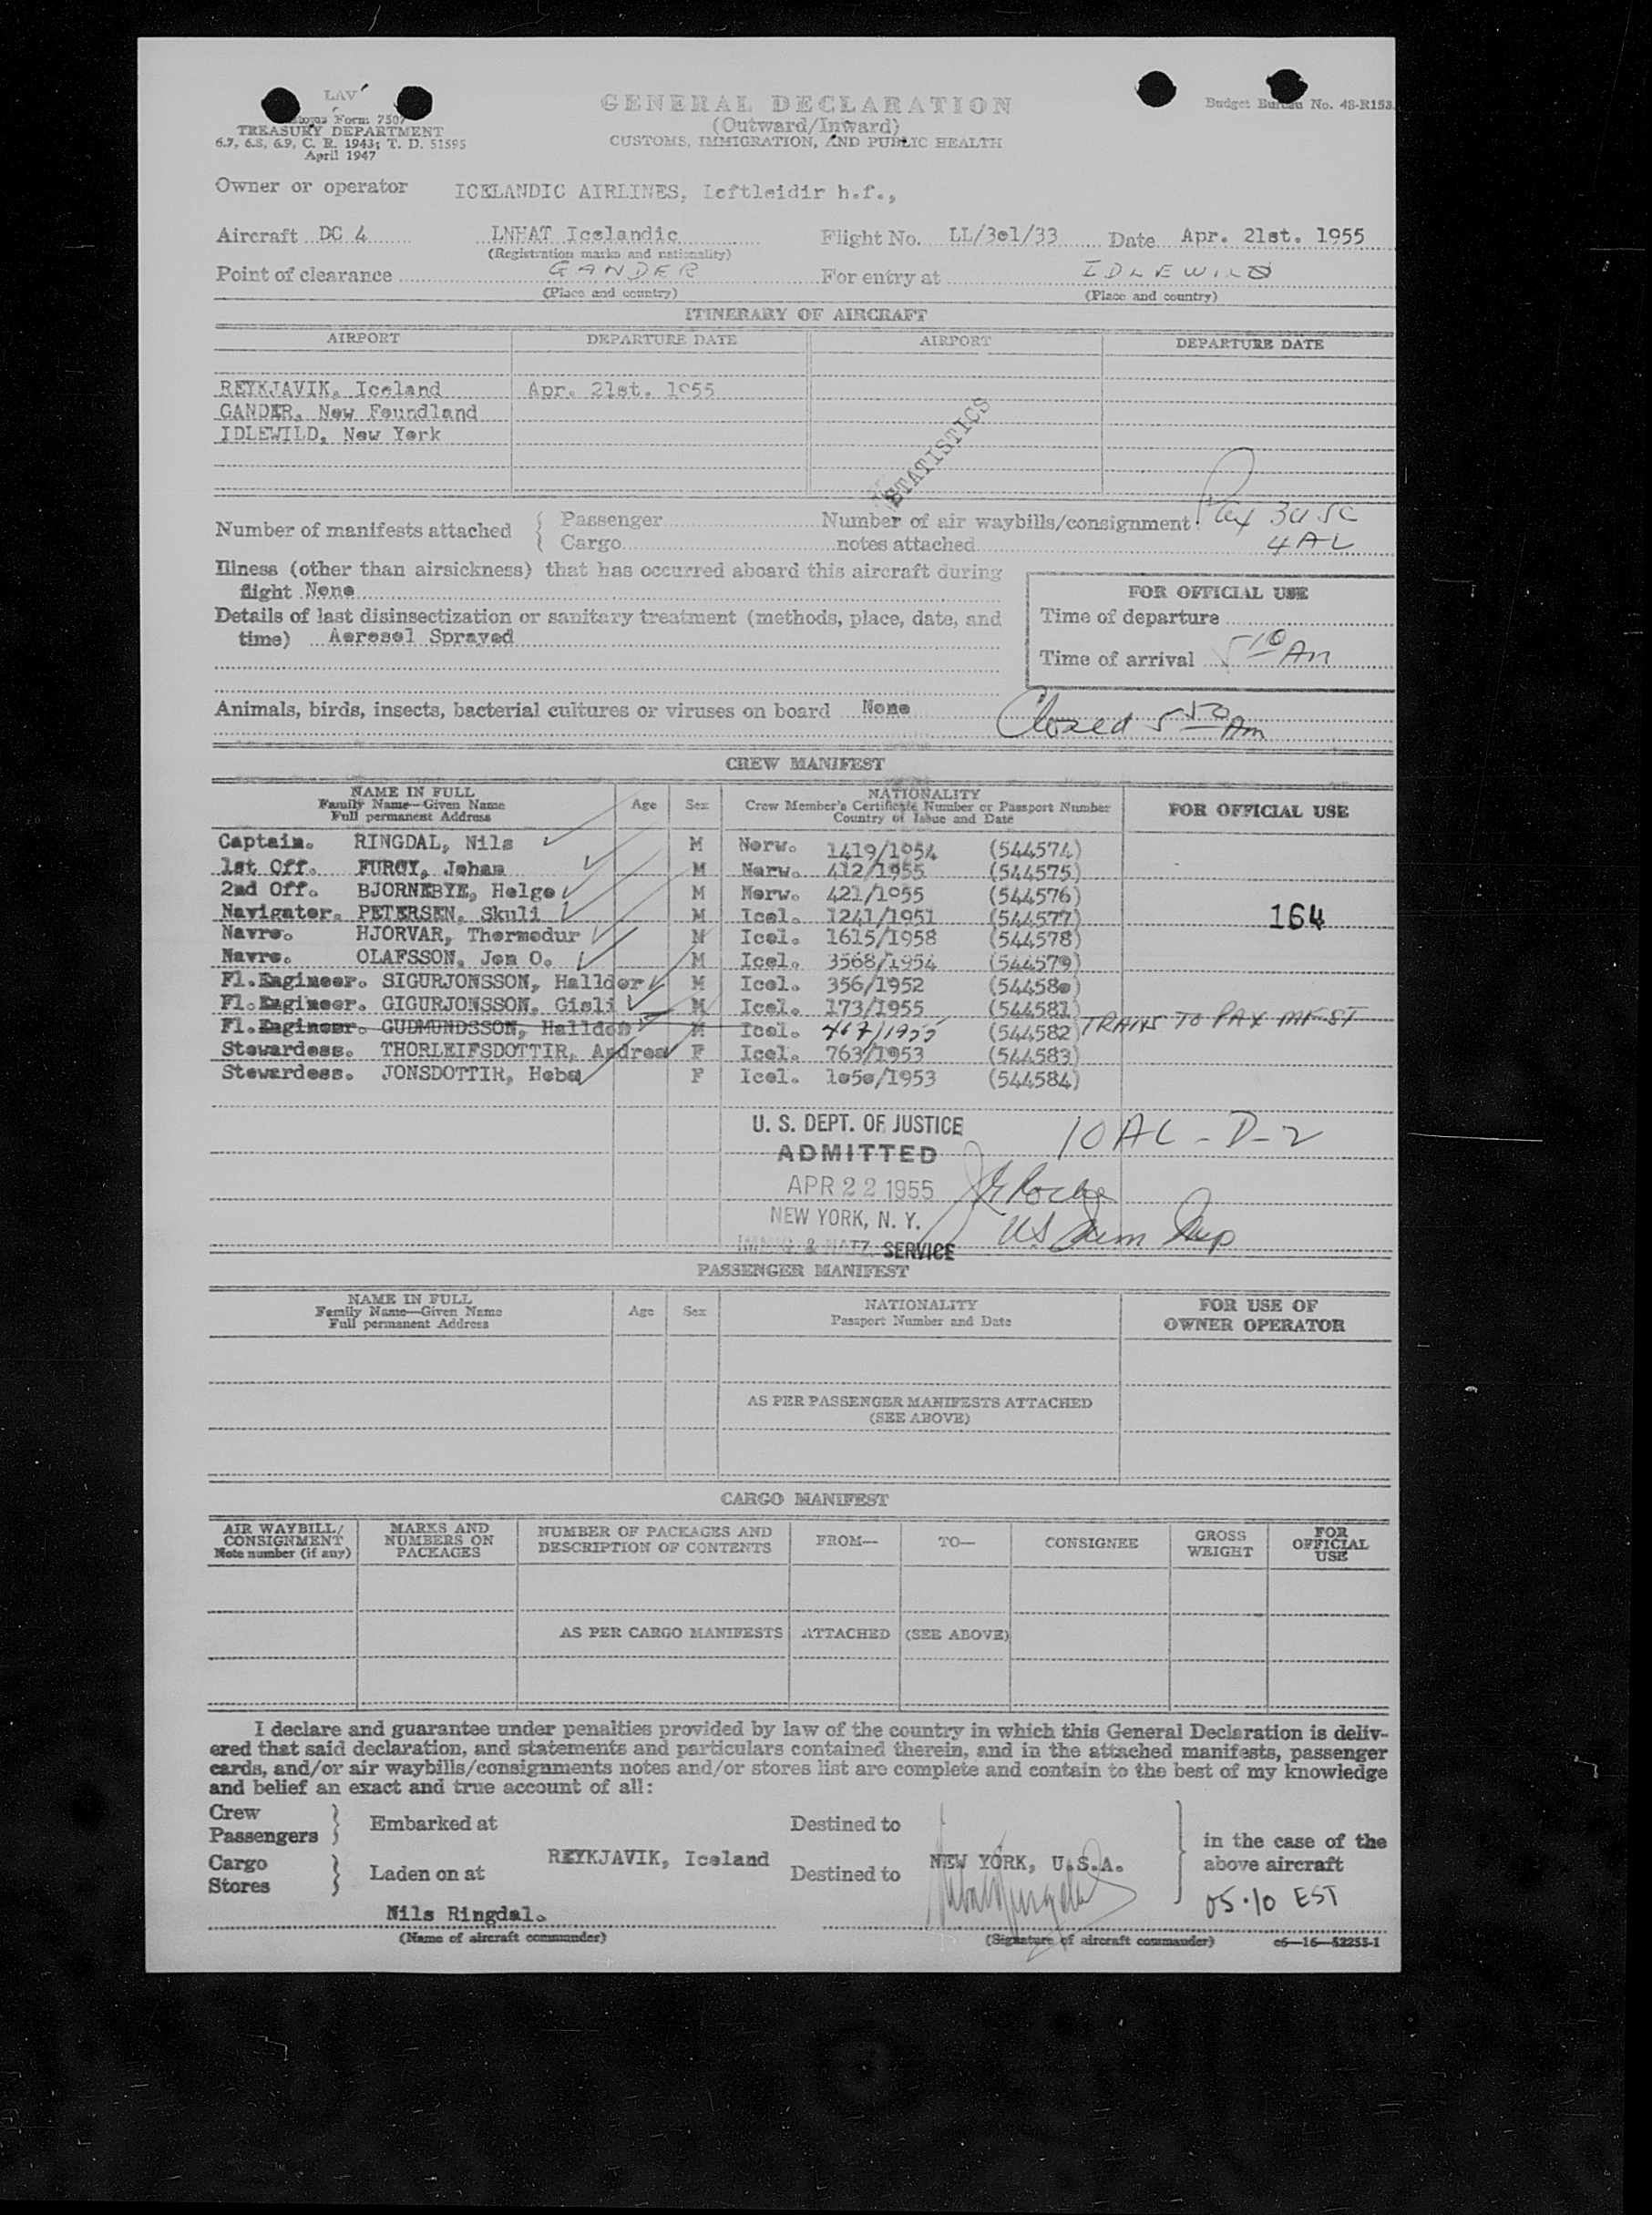 LAV
Form 7507
TREASURY DEPARTMENT
6.7, 6.8, 6.9, C. R. 1943; T. D. 51595
April 1947
GENERAL DECLARATION
(Outward/Inward)
CUSTOMS, IMMIGRATION, AND PUBLIC HEALTH
Budget Bureau No. 48-R153.
Owner or operator ICELANDIC AIRLINES, Loftleidir h.f.,
Aircraft DC 4 LNHAT Icelandic Flight No. LL/3o1/33 Date Apr. 21st. 1955
(Registration marks and nationality)
Point of clearance GANDER For entry at IDLEWILD
(Place and country) (Place and country)
ITINERARY OF AIRCRAFT
AIRPORT DEPARTURE DATE AIRPORT DEPARTURE DATE
REYKJAVIK, Iceland Apr. 21st. 1955
GANDER, New Foundland
IDLEWILD, New York
STATISTICS
Number of manifests attached { Passenger Number of air waybills/consignment
Cargo notes attached
4 AL
Illness (other than airsickness) that has occurred aboard this aircraft during
flight None
FOR OFFICIAL USE
Details of last disinsectization or sanitary treatment (methods, place, date, and
time) Aerosol Sprayed
Time of departure
Time of arrival 5 10 AM
Animals, birds, insects, bacterial cultures or viruses on board None
Closed 5 50 Am
CREW MANIFEST
NAME IN FULL
Family Name—Given Name
Full permanent Address
Age Sex
NATIONALITY
Crew Member's Certificate Number or Passport Number
Country of Issue and Date
FOR OFFICIAL USE
Captain. RINGDAL, Nils M Norw. 1419/1954 (544574)
1st Off. FUROY, Johan M Norw. 412/1955 (544575)
2nd Off. BJORNEBYE, Helge M Norw. 421/1955 (544576)
Navigator. PETERSEN, Skuli M Icel. 1241/1951 (544577) 164
Navro. HJORVAR, Thormodur M Icel. 1615/1958 (544578)
Navro. OLAFSSON, Jon O. M Icel. 3568/1954 (544579)
Fl.Engineer. SIGURJONSSON, Halldor M Icel. 356/1952 (54458o)
Fl.Engineer. GIGURJONSSON, Gisli M Icel. 173/1955 (544581)
Fl.Engineer. GUDMUNDSSON, Halldor M Icel. 467/1955 (544582) TRANS TO PAX MFST
Stewardess. THORLEIFSDOTTIR, Andrea F Icel. 763/1953 (544583)
Stewardess. JONSDOTTIR, Heba F Icel. 1o5o/1953 (544584)
U. S. DEPT. OF JUSTICE
ADMITTED
APR 22 1955
NEW YORK, N. Y.
IMMIG. & NATZ. SERVICE
10 AL - D-2
PASSENGER MANIFEST
NAME IN FULL
Family Name—Given Name
Full permanent Address
Age Sex
NATIONALITY
Passport Number and Date
FOR USE OF
OWNER OPERATOR
AS PER PASSENGER MANIFESTS ATTACHED
(SEE ABOVE)
CARGO MANIFEST
AIR WAYBILL/
CONSIGNMENT
Note number (if any)
MARKS AND
NUMBERS ON
PACKAGES
NUMBER OF PACKAGES AND
DESCRIPTION OF CONTENTS
FROM— TO— CONSIGNEE
GROSS
WEIGHT
FOR
OFFICIAL
USE
AS PER CARGO MANIFESTS ATTACHED (SEE ABOVE)
I declare and guarantee under penalties provided by law of the country in which this General Declaration is deliv-
ered that said declaration, and statements and particulars contained therein, and in the attached manifests, passenger
cards, and/or air waybills/consignments notes and/or stores list are complete and contain to the best of my knowledge
and belief an exact and true account of all:
Crew
Passengers } Embarked at Destined to
Cargo
Stores } Laden on at REYKJAVIK, Iceland Destined to NEW YORK, U.S.A.
in the case of the
above aircraft
05.10 EST
Nils Ringdal.
(Name of aircraft commander) (Signature of aircraft commander) c6—16—52255-1